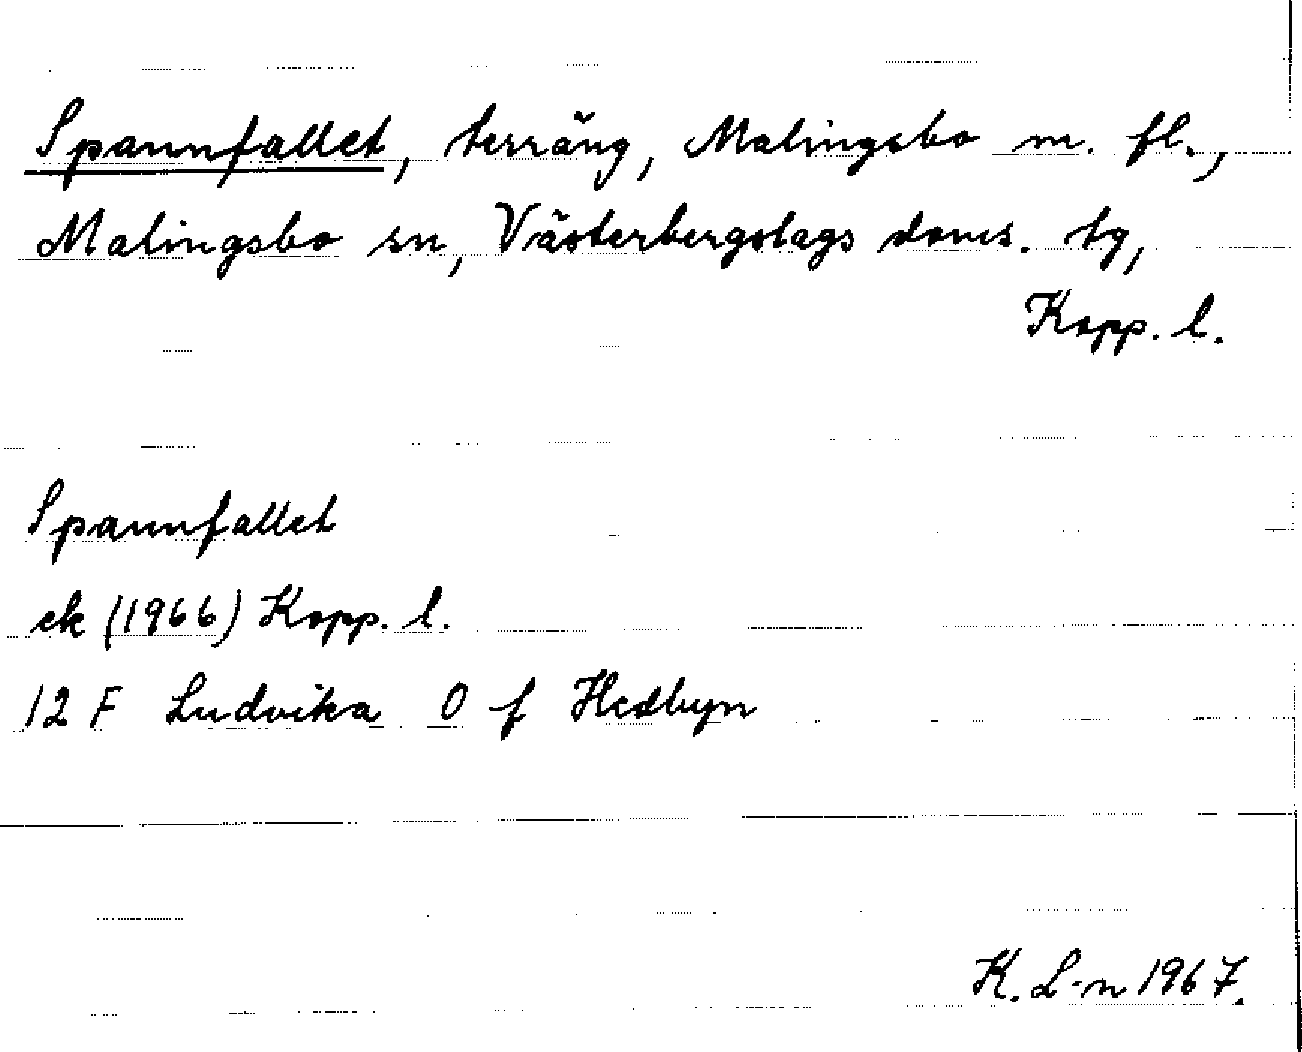 Spannfallet, terräng, Malingsbo m. fl.,
Malingsbo sn, Västerbergslags doms. tg,
Kopp. l.
Spannfallet
ek (1966) Kopp. l.
12 F Ludvika O f Hedbyn
K. L-n 1967.